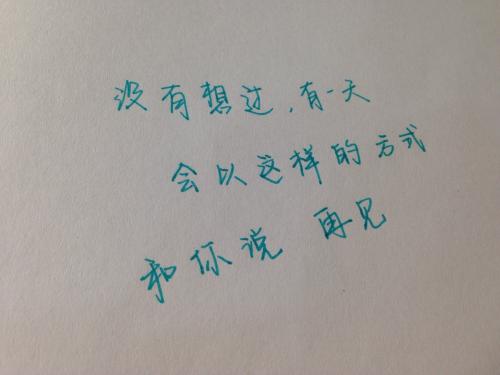 没有想过，有一天
会以这样的方式
和你说 再见